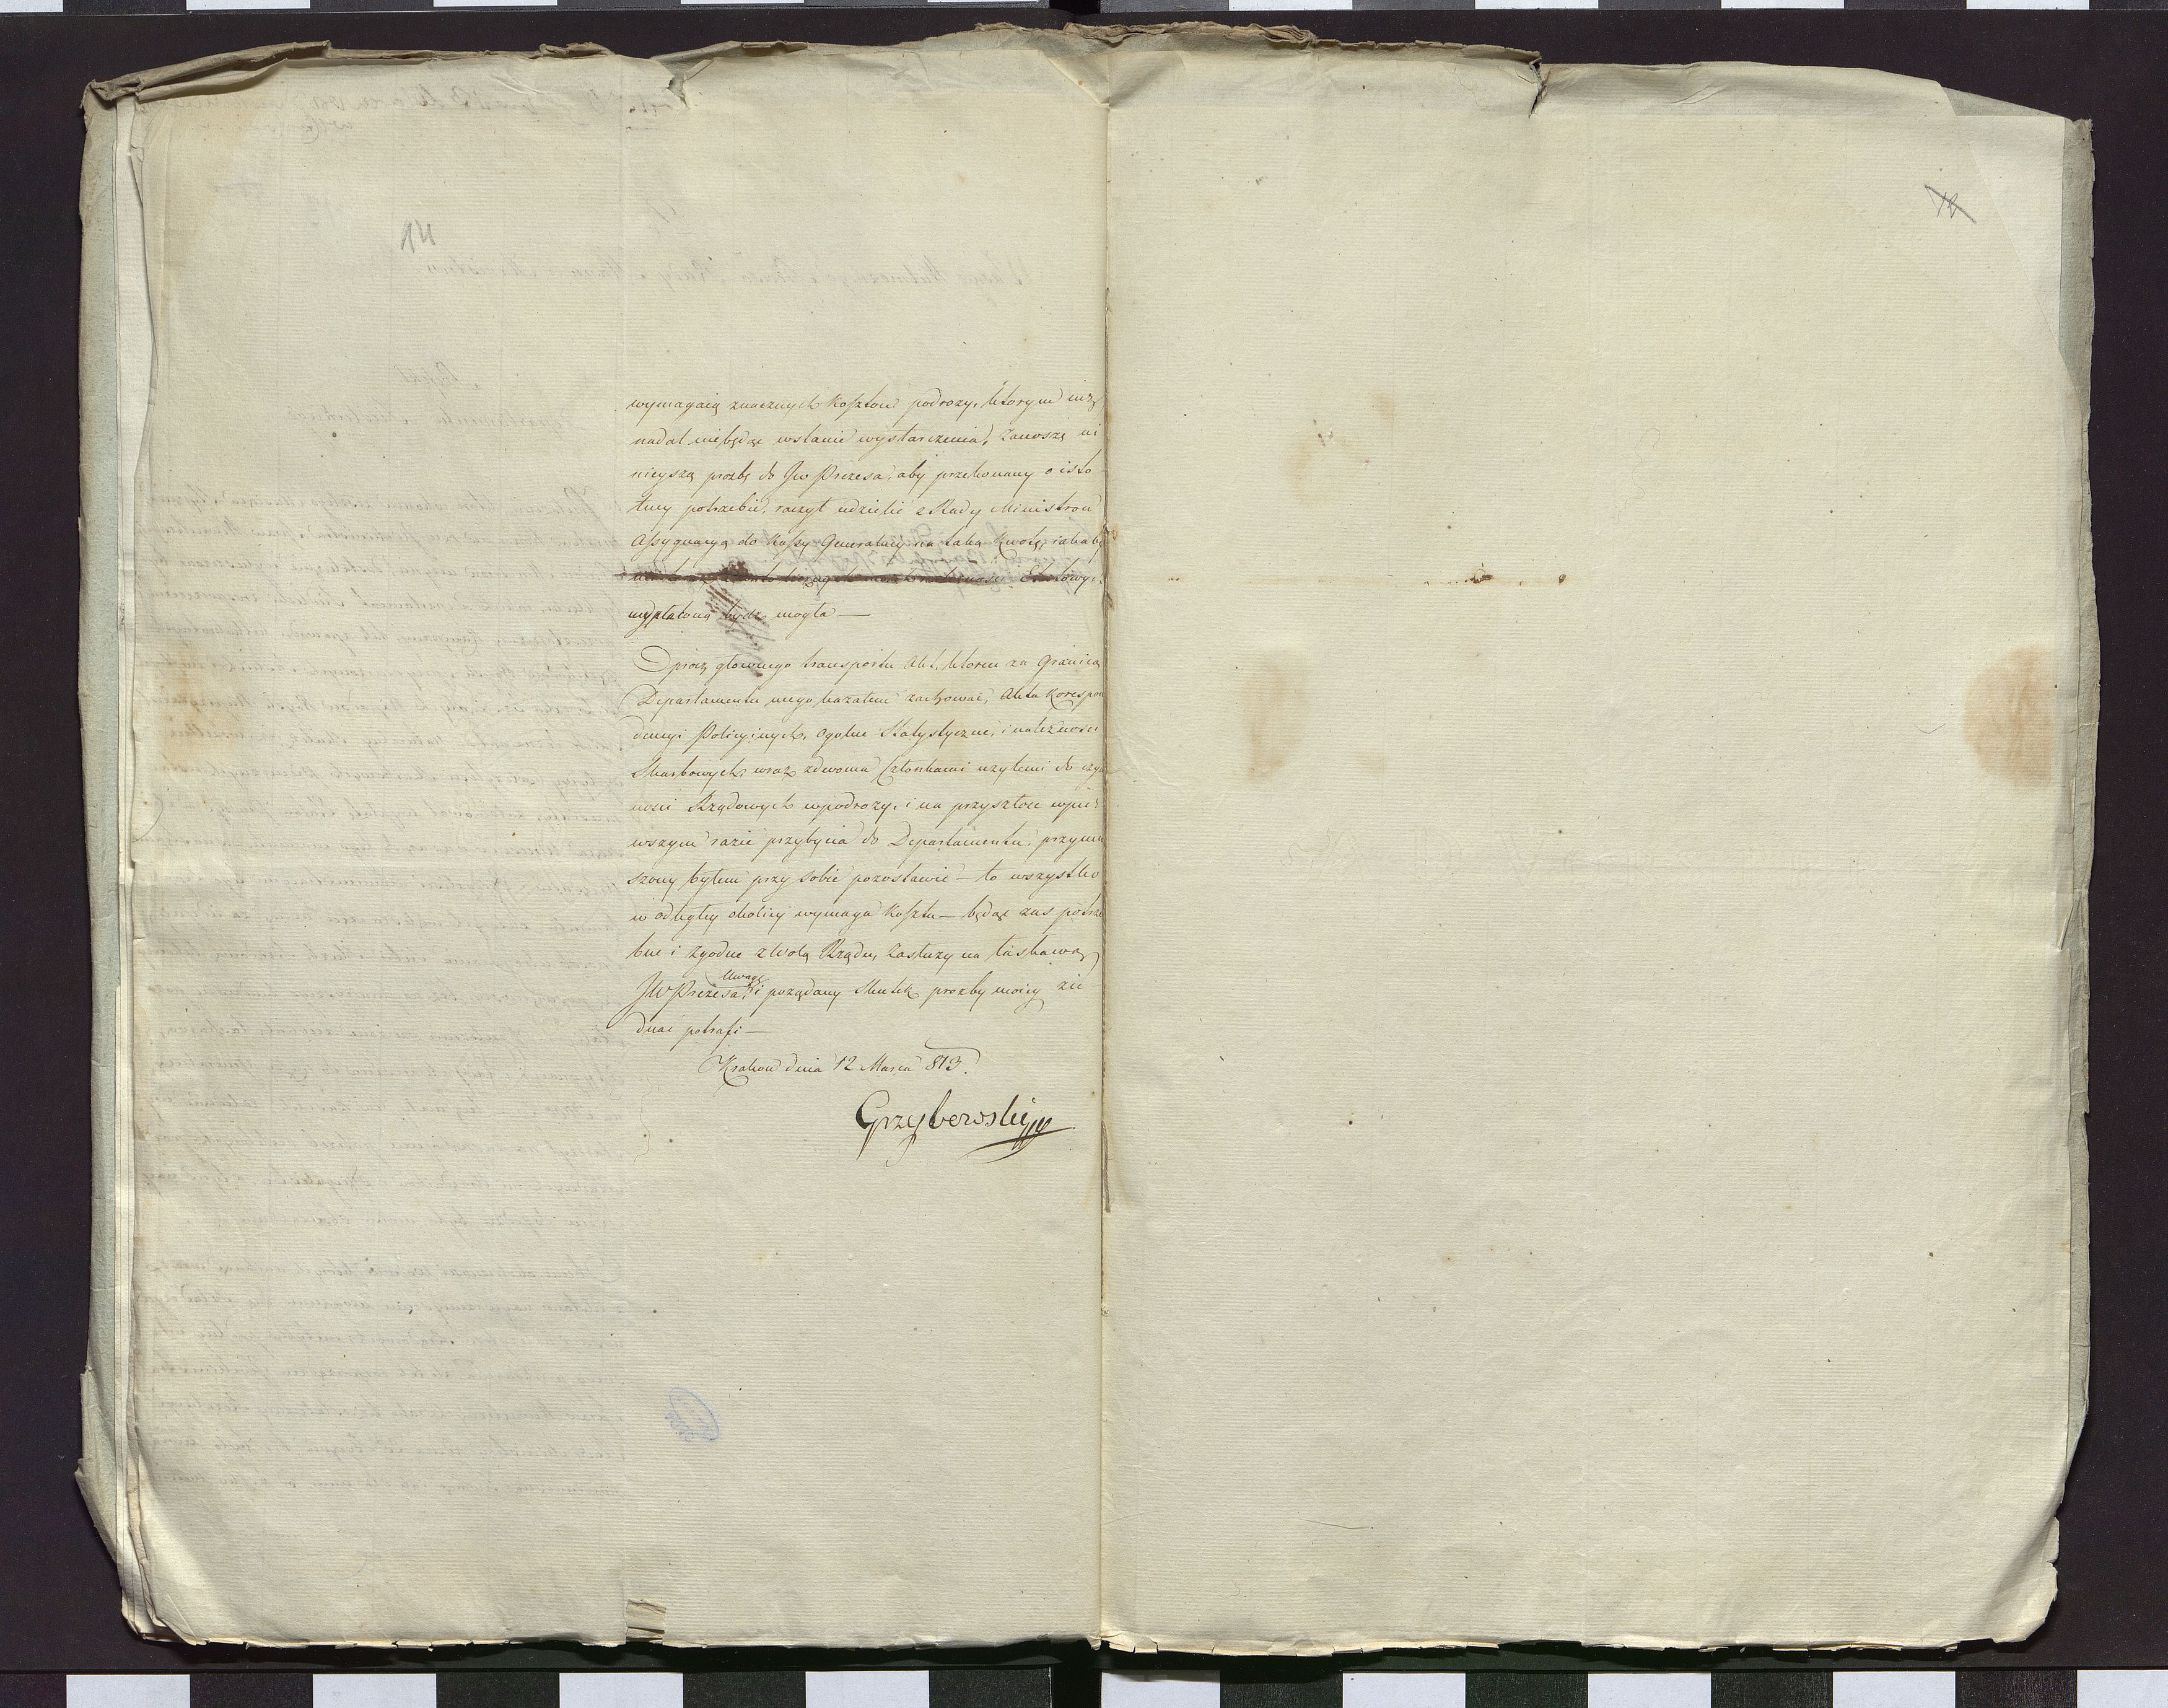 14
12
wymagaią znacznych kosztow podrozy, ktorym iuz
nadal niebędąc wstanie wystarczenia, zanoszę ni
nieyszą prozbę do Jw Prezesa, aby przekonany o isto
tney potrzebie, raczył udzielić z Rady Ministrow
Assygnacyą do Kassy Generalney na taką kwotę, iakaby
wypłaconą bydz mogła —
Oprocz głownego transportu Akt, ktorem za Granicą
Departamentu mego kazałem zachować, Akta Korespon
dencyi Policyinych, ogolne Statystyczne, i należnosci
Skarbowych, wraz zdwoma Członkami użytemi do czyn
nosci Rządowych wpodrozy, i na przyszłosc wpier
wszym razie przybycia do Departamentu, przymu
szony byłem przy sobie pozostawić — to wszystko
w odległey okolicy wymaga kosztu — będąc zas potrze
bne i zgodne zWolą Rządu, zasłuzy na łaskawą
Uwagę
JW Prezesa, i pożądany skutek prozby moiey zie
dnać potrafi —
Krakow dnia 12 Marca 813.
Grzyberwski